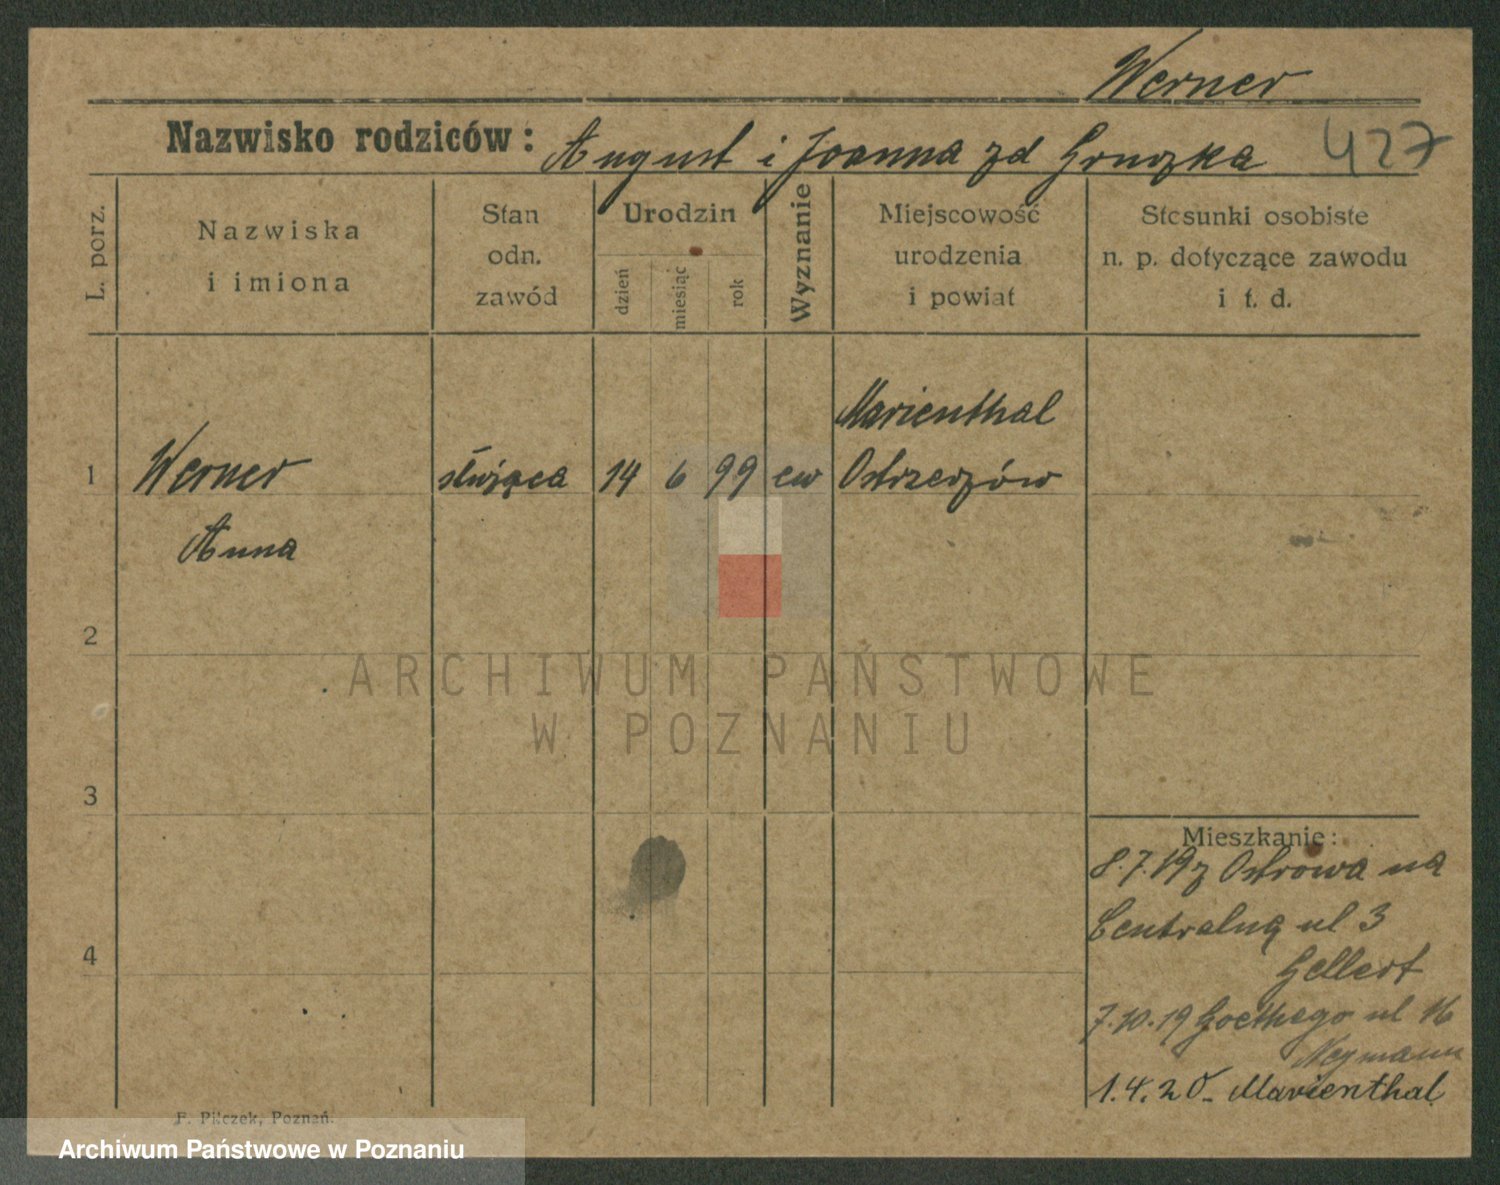 Werner
Nazwisko rodziców: August i Joanna zd Gruszka
427
L. porz.
Nazwiska
i imiona
Stan
odn.
zawód
Urodzin
dzień
miesiąc
rok
Wyznanie
Miejscowość
urodzenia
i powiat
Stosunki osobiste
n. p. dotyczące zawodu
i t. d.
Marienthal
1 Werner służąca 14 6 99 ew Ostrzeszów
Anna
2
ARCHIWUM PAŃSTWOWE
W POZNANIU
3
Mieszkanie:
8.7.19 z Ostrowa na
Centralną ul 3
4
Gellert
7.10.19 Goethego ul 16
Neymann
1.4.20 - Marienthal
F. Pilczek, Poznań.
Archiwum Państwowe w Poznaniu